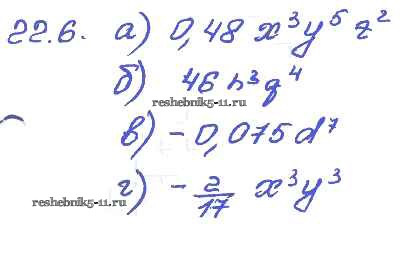 22.6. а) 0,48 x³y⁵z²
б) 46 n³q⁴
reshebnik5-11.ru
в) - 0,075 d⁷
г) - 2/17 x³y³
reshebnik5-11.ru